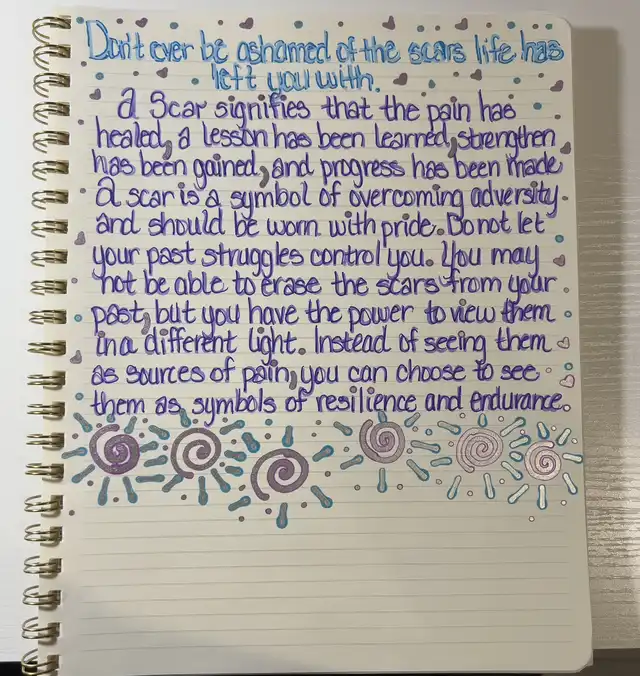 Don't ever be ashamed of the scars life has
left you with.
A Scar signifies that the pain has
healed, a lesson has been learned, strengthen
has been gained, and progress has been made
A scar is a symbol of overcoming adversity.
and should be worn with pride. Do not let
your past struggles control you. You may
not be able to erase the scars from your
past, but you have the power to view them
in a different light. Instead of seeing them
as sources of pain, you can choose to see
them as symbols of resilience and endurance.